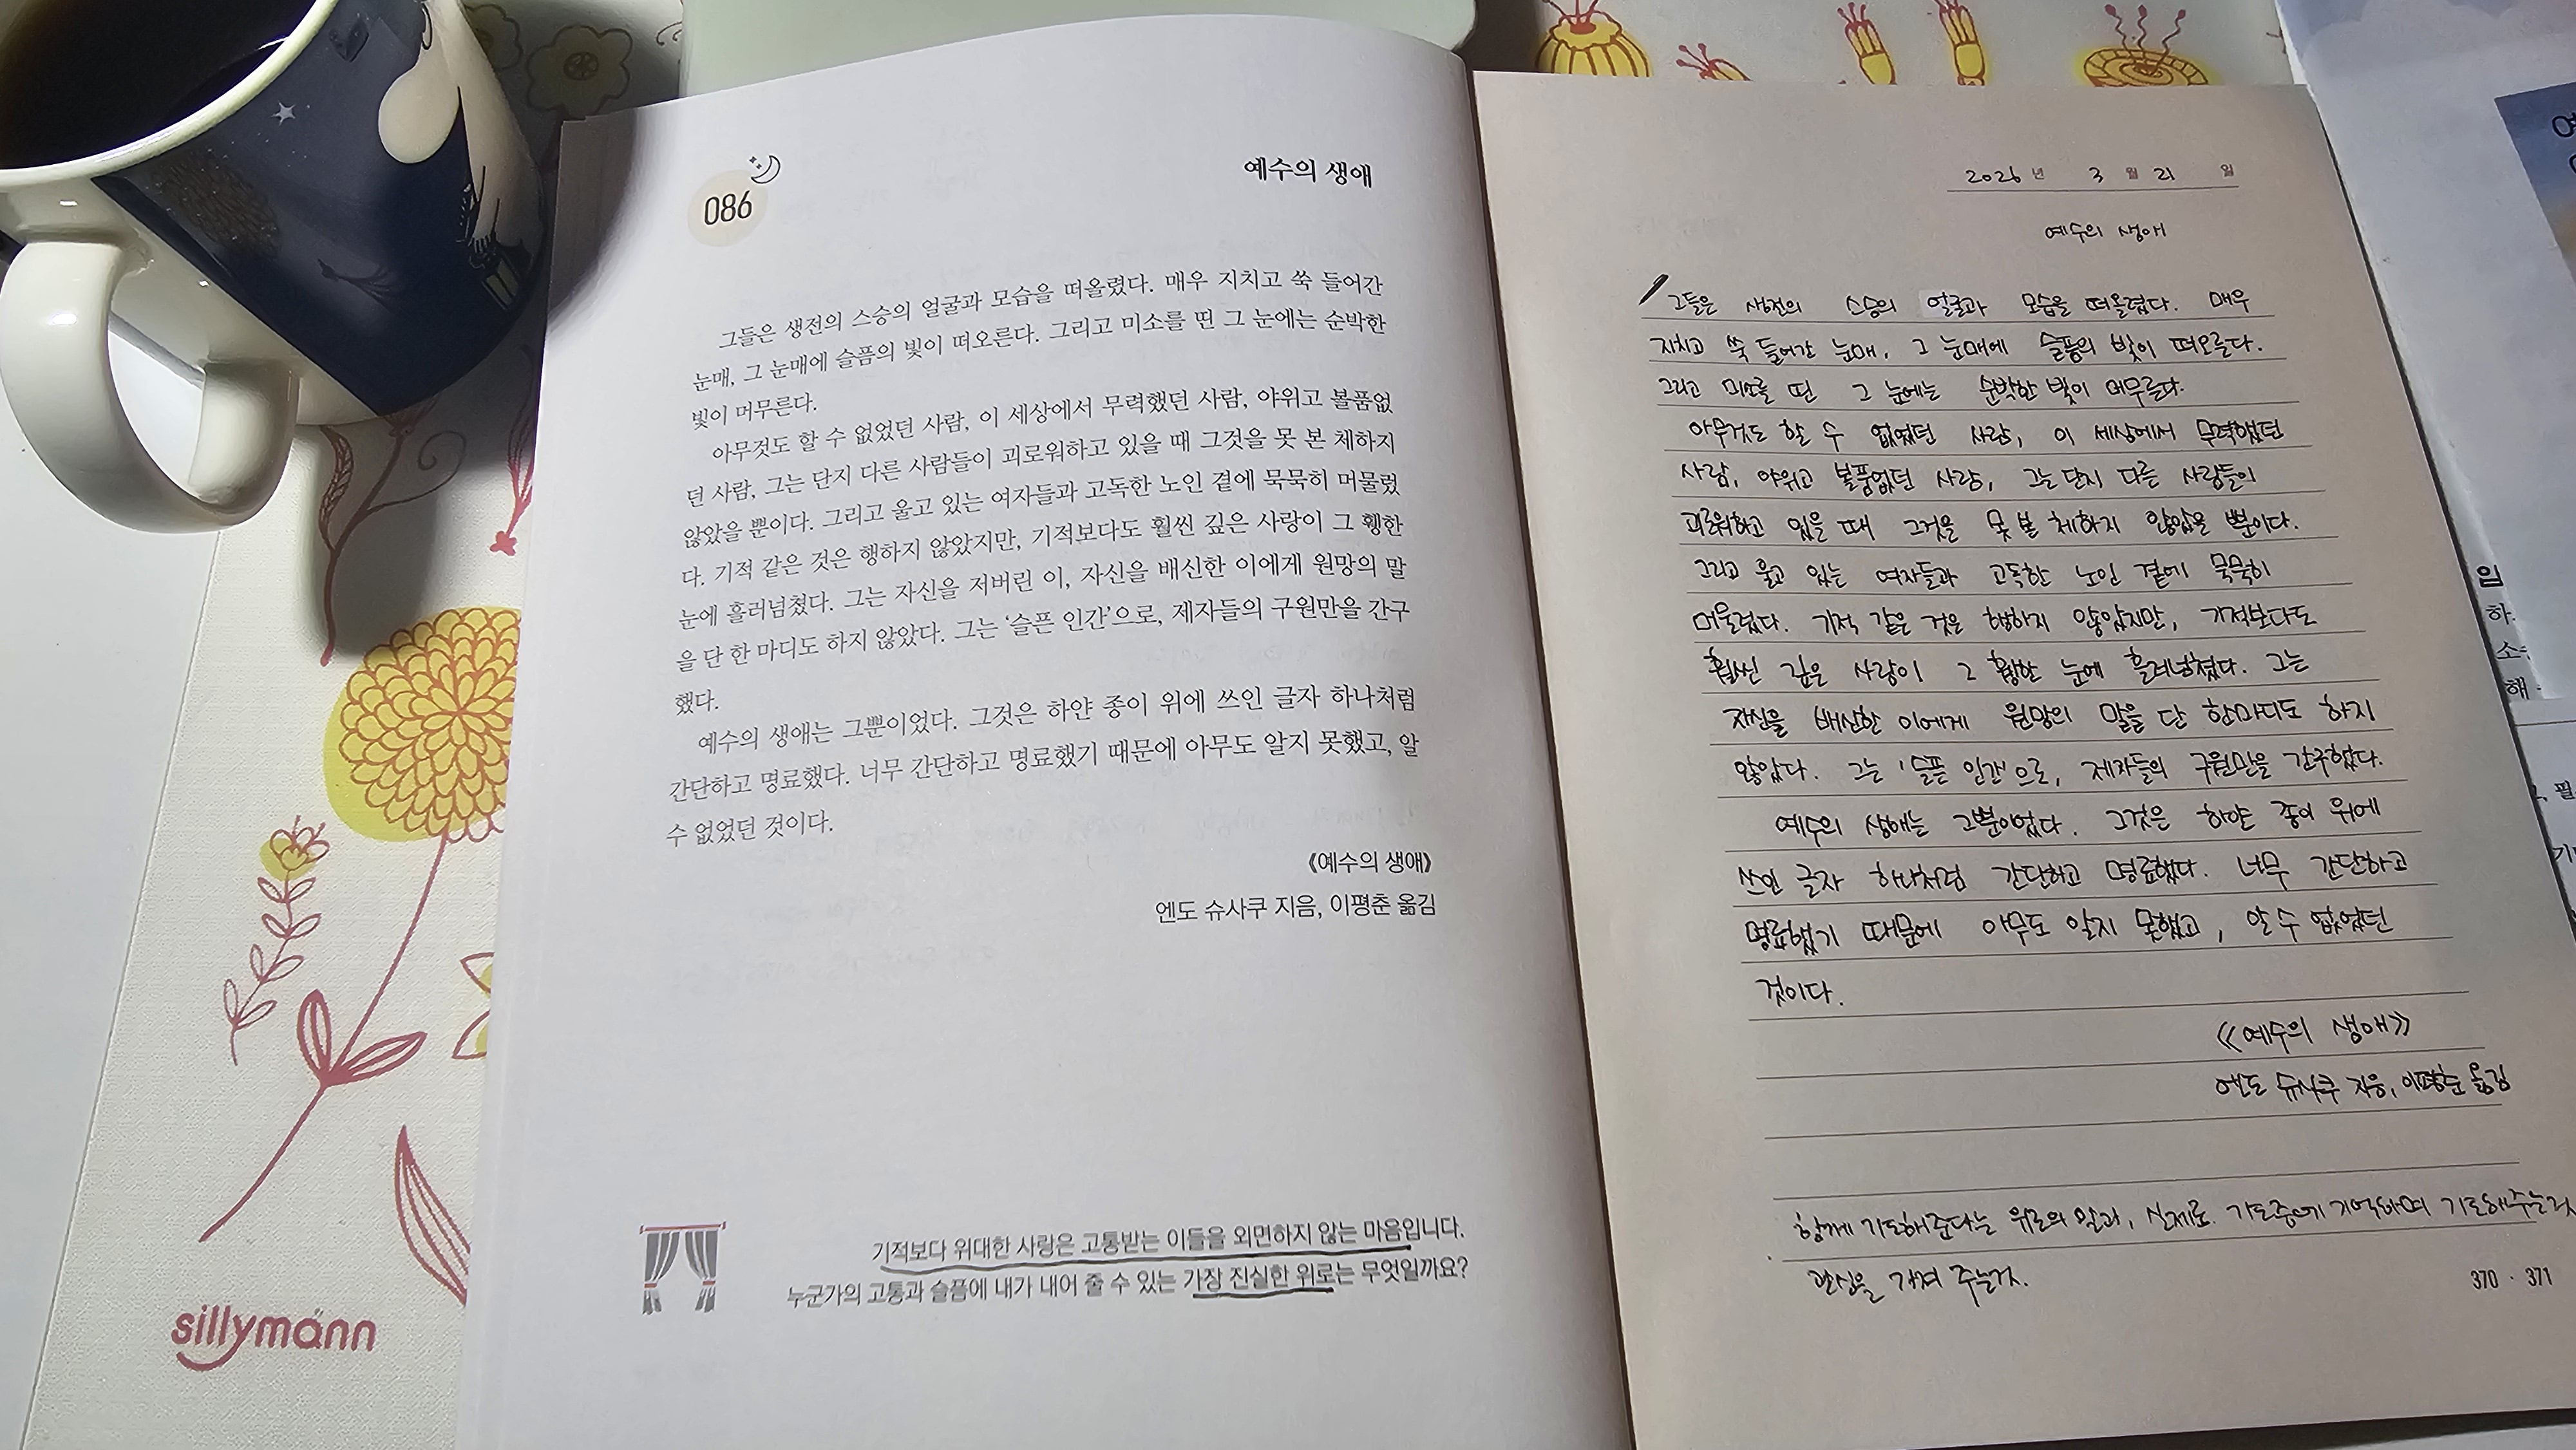 086
예수의 생애
그들은 생전의 스승의 얼굴과 모습을 떠올렸다. 매우 지치고 쑥 들어간
눈매, 그 눈매에 슬픔의 빛이 떠오른다. 그리고 미소를 띤 그 눈에는 순박한
빛이 머무른다.
아무것도 할 수 없었던 사람, 이 세상에서 무력했던 사람, 야위고 볼품없
던 사람, 그는 단지 다른 사람들이 괴로워하고 있을 때 그것을 못 본 체하지
않았을 뿐이다. 그리고 울고 있는 여자들과 고독한 노인 곁에 묵묵히 머물렀
다. 기적 같은 것은 행하지 않았지만, 기적보다도 훨씬 깊은 사랑이 그 휑한
눈에 흘러넘쳤다. 그는 자신을 저버린 이, 자신을 배신한 이에게 원망의 말
을 단 한 마디도 하지 않았다. 그는 ‘슬픈 인간’으로, 제자들의 구원만을 간구
했다.
예수의 생애는 그뿐이었다. 그것은 하얀 종이 위에 쓰인 글자 하나처럼
간단하고 명료했다. 너무 간단하고 명료했기 때문에 아무도 알지 못했고, 알
수 없었던 것이다.
《예수의 생애》
엔도 슈사쿠 지음, 이평춘 옮김
기적보다 위대한 사랑은 고통받는 이들을 외면하지 않는 마음입니다.
누군가의 고통과 슬픔에 내가 내어 줄 수 있는 가장 진실한 위로는 무엇일까요?
2026년 3월 21일
예수의 생애
그들은 생전의 스승의 얼굴과 모습을 떠올렸다. 매우
지치고 쑥 들어간 눈매, 그 눈매에 슬픔의 빛이 떠오른다.
그리고 미소를 띤 그 눈에는 순박한 빛이 머무른다.
아무것도 할 수 없었던 사람, 이 세상에서 무력했던
사람, 야위고 볼품없던 사람, 그는 단지 다른 사람들이
괴로워하고 있을 때 그것을 못 본 체하지 않았을 뿐이다.
그리고 울고 있는 여자들과 고독한 노인 곁에 묵묵히
머물렀다. 기적 같은 것은 행하지 않았지만, 기적보다도
훨씬 깊은 사랑이 그 휑한 눈에 흘러넘쳤다. 그는
자신을 배신한 이에게 원망의 말을 단 한마디도 하지
않았다. 그는 '슬픈 인간'으로, 제자들의 구원만을 간구했다.
예수의 생애는 그뿐이었다. 그것은 하얀 종이 위에
쓰인 글자 하나처럼 간단하고 명료했다. 너무 간단하고
명료했기 때문에 아무도 알지 못했고, 알 수 없었던
것이다.
《예수의 생애》
엔도 슈사쿠 지음, 이평춘 옮김
함께 기도해준다는 위로의 말과, 실제로 기도중에 기억하며 기도해주는것
관심을 가져 주는것.
370 · 371
sillymann